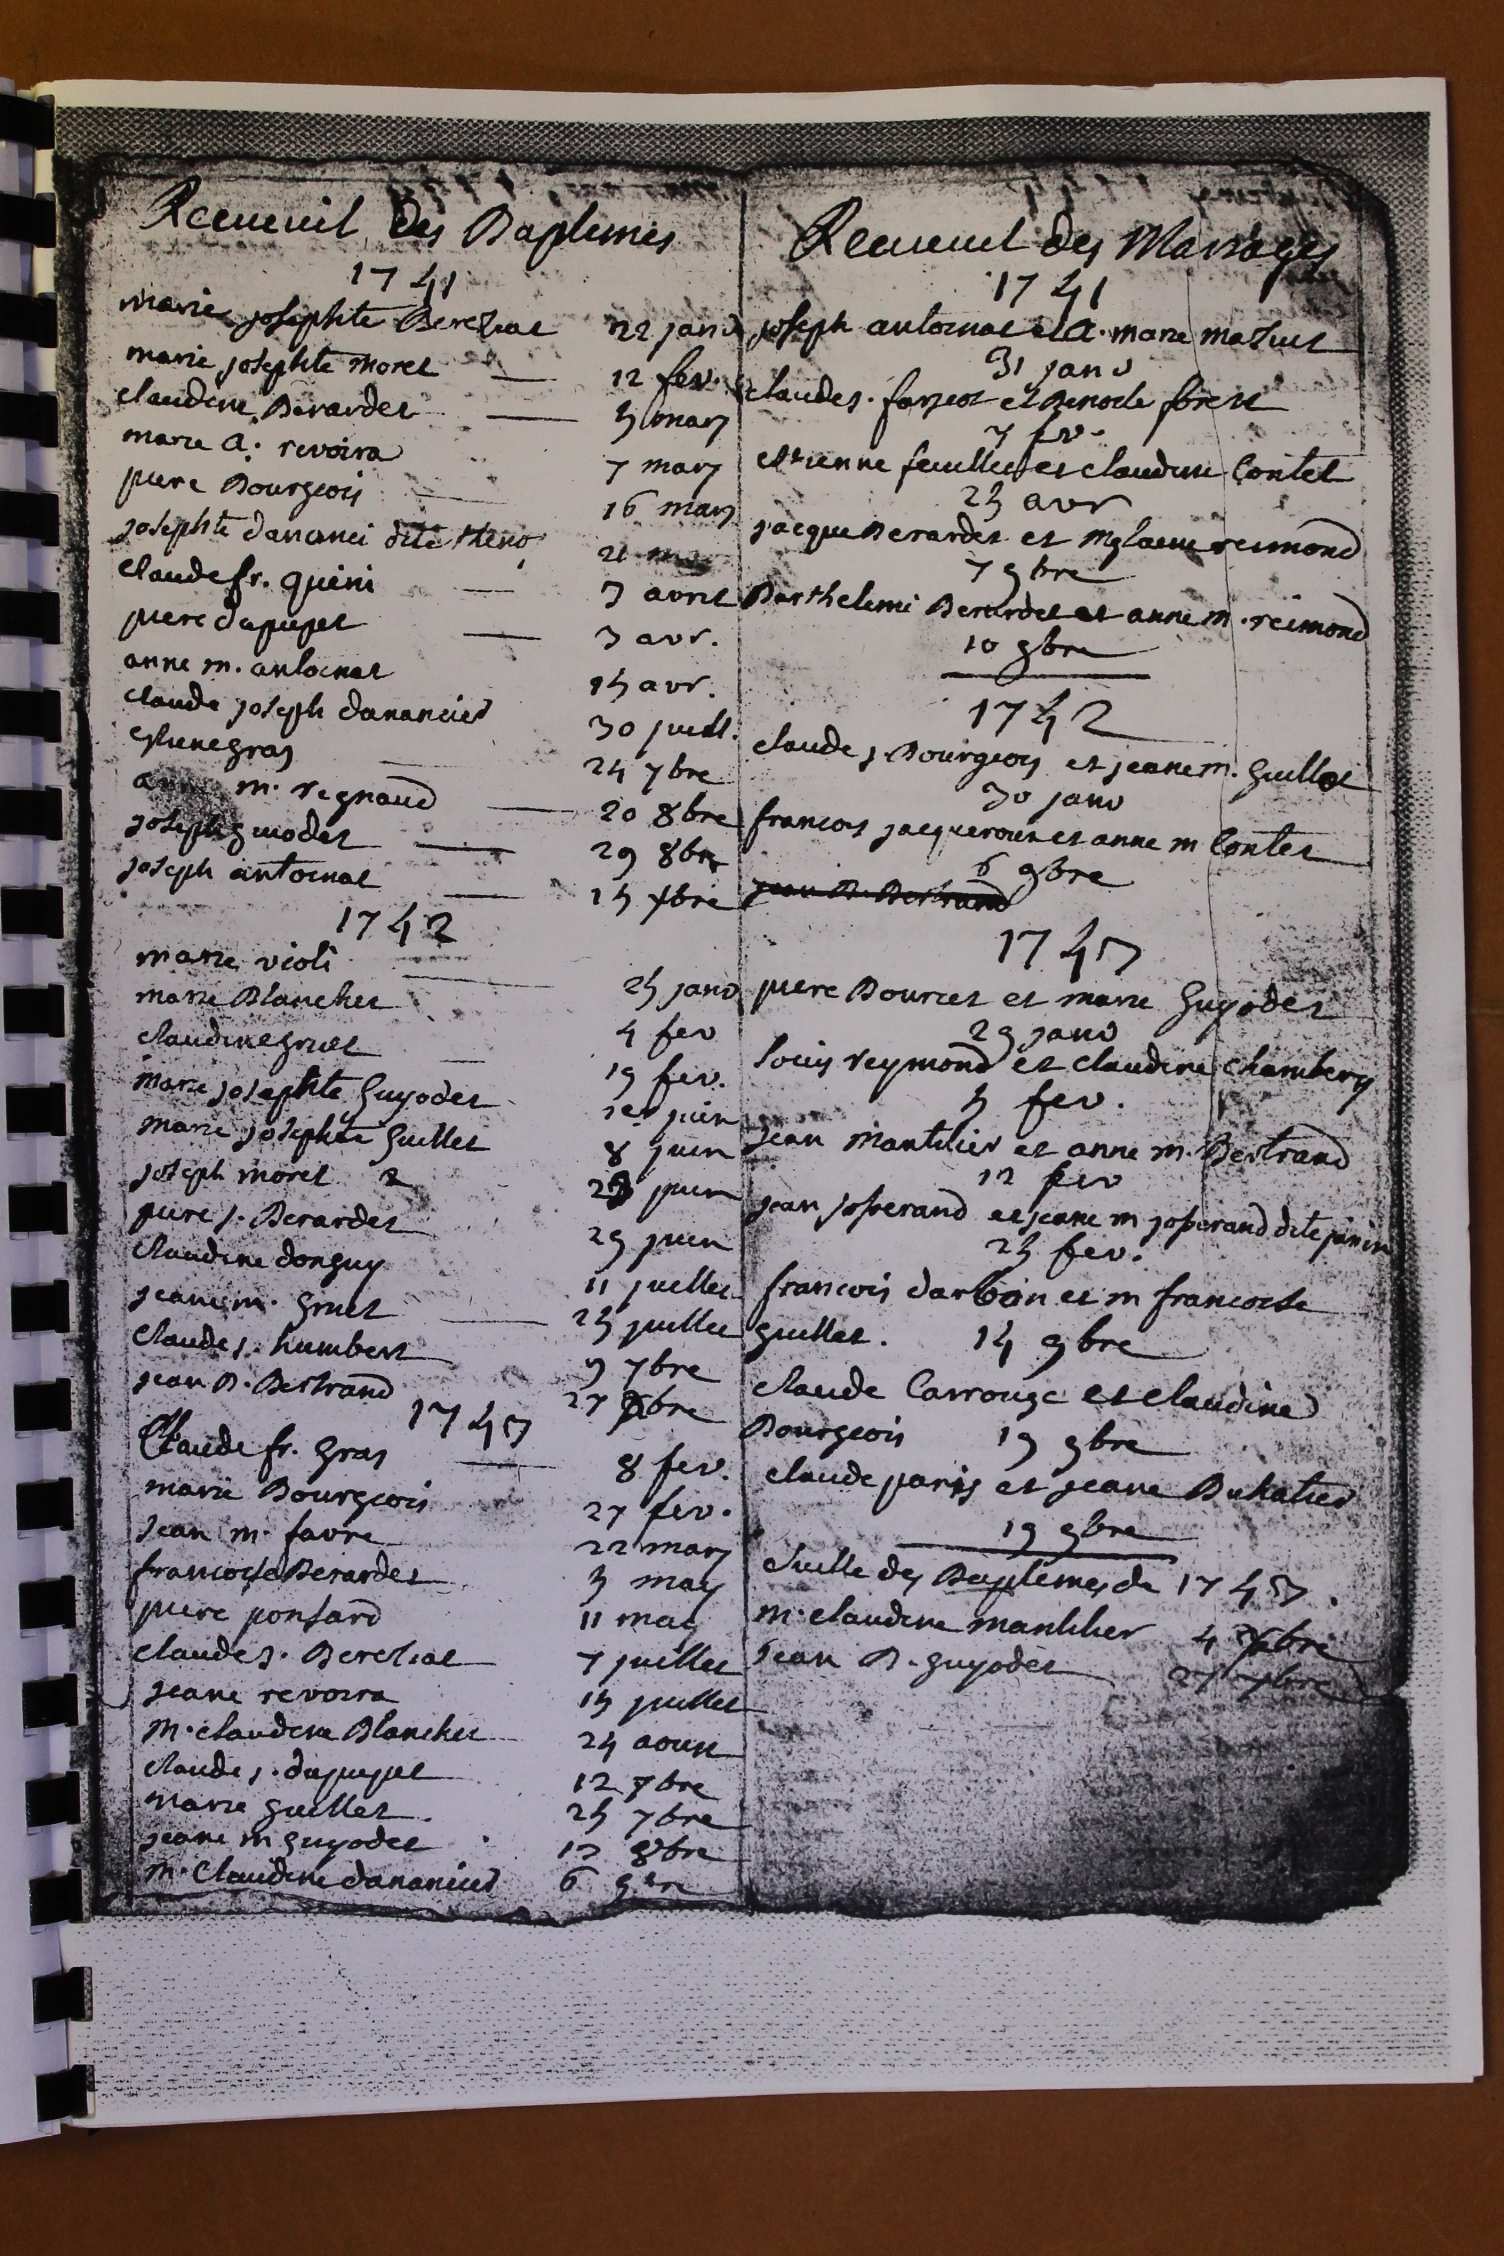 Recueuil des Baptemes
1741
marie josephte Berchat 22 janv
marie josephte moret 12 fev.
claudine Berardet 5 mars
marie a. revoira 7 mars
piere Bourgeois 16 mars
josephte dananci dite
claude fr. quini 3 avril
piere dapupet 3 avr.
anne m. antoinat 15 avr.
claude joseph dananciet 30 juill.
gras 24 7bre
m. regnaud 20 8bre
joseph guiodet 29 8bre
joseph antoinat
1742
marie violi 25 janv
marie Blanchet 4 fev
claudine gruet 19 fev.
marie josephte guyodet 1er juin
marie josephte guillet 8 juin
joseph moret juin
piere j. Berardet 29 juin
claudine donguy 11 juillet
jeane m. gruet 25 juillet
claude j. humbert 9 7bre
jean B. Bertrand
1743
Claude fr. gras 8 fev.
marie Bourgeois 27 fev.
jean m. favre 22 mars
francoise Berardet 5 may
piere ponsard 11 may
claude j. Berchat 7 juillet
jeane revoira 15 juillet
m. claudine Blanchet 24 aoust
claude j. dapupet 12 7bre
marie guillet 25 7bre
jeane m guyodet 8bre
m. Claudine dananciet 6
Recueuil des Mariages
1741
joseph antoinat et a. marie
31 janv
claude j. et Benoite
7 fev.
estienne feuillet et claudine Contet
25 avr
jacque Berardet et reimond
7 9bre
Barthelemi Berardet et anne m. reimond
10 9bre
1742
claude j. Bourgeois et jeane m. guillot
30 janv
francois et anne m Contet
6 9bre
jean B. Bertrand
1743
piere Bourcet et marie guyodet
29 janv
louis reymond et claudine chambery
5 fev.
jean mantilier et anne m. Bertrand
12 fev
jean josserand et jeane m josserand dite janin
25 fev.
francois darbon et m francoise
guillet. 14 9bre
claude Carrouge et claudine
Bourgeois 19 9bre
claude paris et jeane
19 9bre
suitte des Baptemes de 1743.
m. claudine mantilier
jean B. guyodet 27 7bre